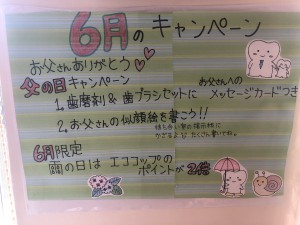 6月のキャンペーン
お父さんありがとう
父の日キャンペーン
お父さんへの
1. 歯磨剤&歯ブラシセットに メッセージカードつき
2. お父さんの似顔絵を書こう!!
待ち合い室の掲示板に
かざるよ たくさん書いてね。
6月限定
雨の日は エココップの
ポイントが2倍